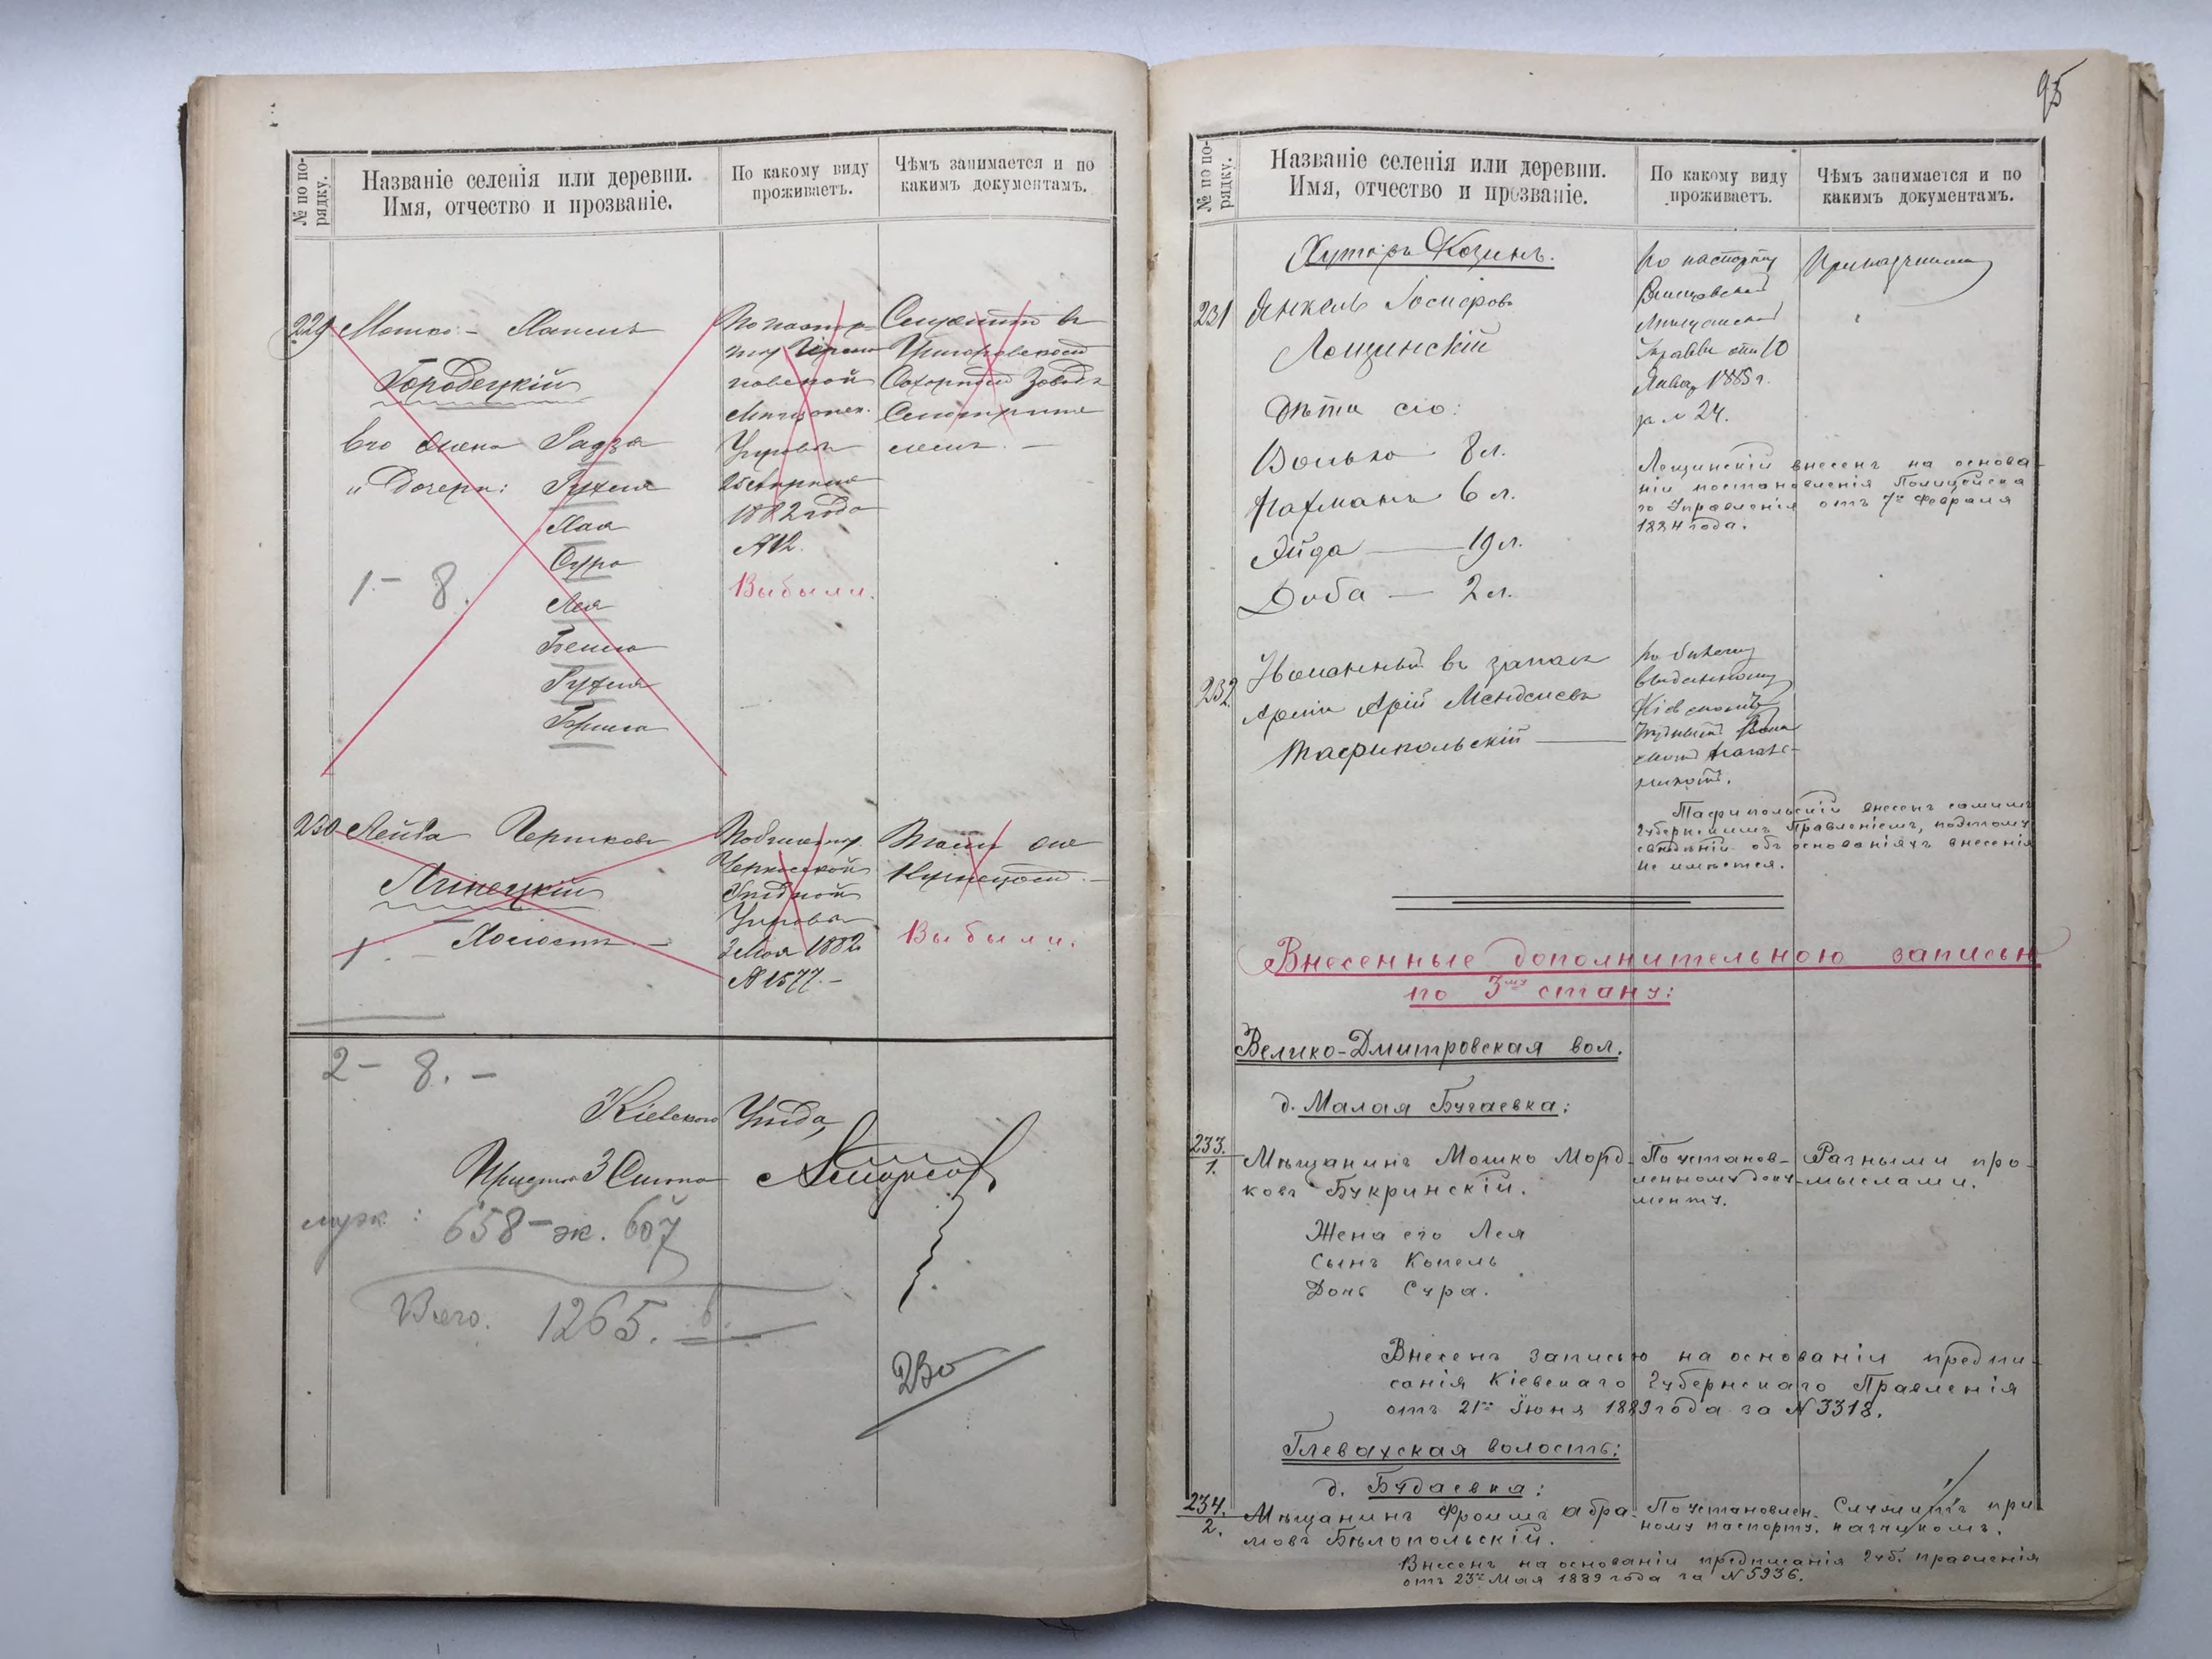 № по по-
рядку.
Названіе селенія или деревни.
Имя, отчество и прозваніе.
По какому виду
проживаетъ.
Чѣмъ занимается и по
какимъ документамъ.
229 Мошко - 
Городецкій
Его жена
" Дочери: Рухля
Хая
Сура
Лея
Рухля
По паспор-
ту
Мѣщанск.
Управы
1882 года
№12.
Выбыли.
Служитъ въ
Григоровскомъ
Сахарномъ Заводѣ
1 - 8.
230 Лейба Гершковъ
Липецкій
Холостъ. -
1. -
Черкасской
Управы
3 Мая 1882
№ 1577. -
Выбыли.
2 - 8. -
Кіевского Уѣзда,
Приставъ 3 Стана
муж: 658 - ж. 607
Всего. 1265.
230
95
№ по по-
рядку.
Названіе селенія или деревни.
Имя, отчество и прозваніе.
По какому виду
проживаетъ.
Чѣмъ занимается и по
какимъ документамъ.
Хуторъ Козинъ.
231 Янкель Іосифовъ
Лещинскій
Дѣти его:
Волько 8 л.
Нахманъ 6 л.
Эйда — 19 л.
Доба — 2 л.
По паспорту
Управы отъ 10
1885 г.
за № 24.
Лещинскій внесенъ на основа-
ніи постановленія Полицейска
го Управленія отъ 7го Февраля
1884 года.
232. Уволенный въ запасъ
Арміи Арій Менделевъ
Таврипольскій —
По билету
выданному
Кіевскимъ
Уѣзднымъ Воин
скимъ Началь-
никомъ.
Таврипольскій внесенъ самимъ
Губернскимъ Правленіемъ, поэтому
свѣдѣній объ основаніяхъ внесенія
не имѣется.
Внесенные дополнительною записью
по 3му стану:
Велико-Дмитровская вол.
д. Малая Бугаевка:
233.
1. Мѣщанинъ Мошко Морд-
ковъ Букринскій.
По установ-
ленному доку-
менту.
Разными про-
мыслами.
Жена его Лея
Сынъ Копель
Дочь Сура.
Внесенъ записью на основаніи предпи-
санія Кіевскаго Губернскаго Правленія
отъ 21го Іюня 1889 года за № 3318.
Глевахская волость:
д. Будаевка:
234.
2. Мѣщанинъ Фроимъ Абра-
мовъ Бѣлопольскій.
По установлен-
ному паспорту.
Служитъ при
казчикомъ.
Внесенъ на основаніи предписанія Губ. правленія
отъ 23го Мая 1889 года за № 5936.